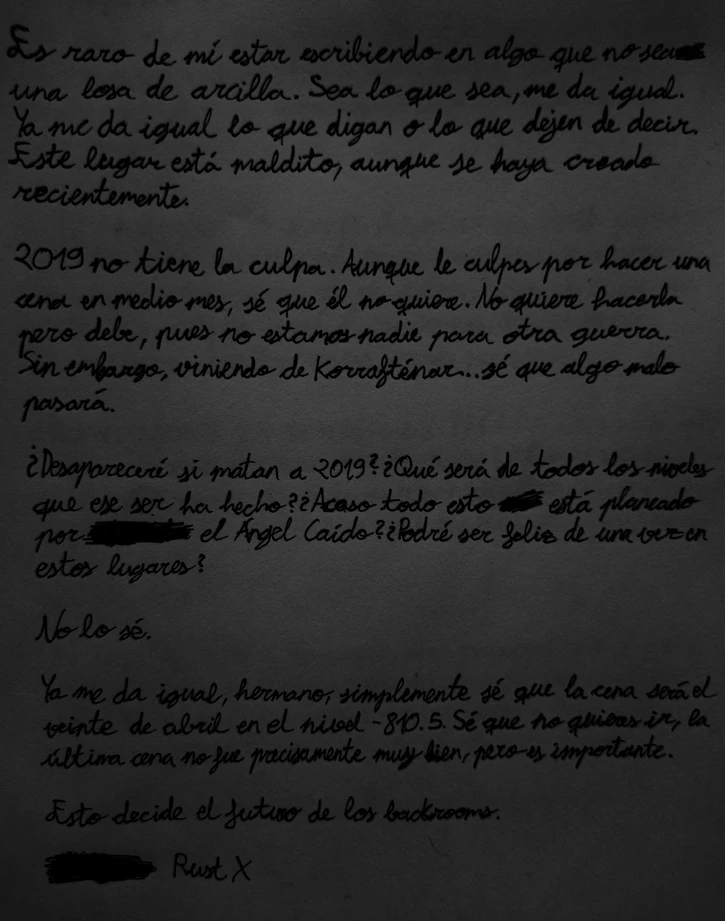 Es raro de mí estar escribiendo en algo que no sea
una losa de arcilla. Sea lo que sea, me da igual.
Ya me da igual lo que digan o lo que dejen de decir.
Este lugar está maldito, aunque se haya creado
recientemente.
2019 no tiene la culpa. Aunque le culpes por hacer una
cena en medio mes, sé que él no quiere. No quiere hacerla
pero debe, pues no estamos nadie para otra guerra.
Sin embargo, viniendo de Korrafténar... sé que algo malo
pasará.
¿Desapareceré si matan a 2019? ¿Qué será de todos los niveles
que ese ser ha hecho? ¿Acaso todo esto está planeado
por el Ángel Caído? ¿Podré ser feliz de una vez en
estos lugares?
No lo sé.
Ya me da igual, hermano, simplemente sé que la cena será el
veinte de abril en el nivel -810.5. Sé que no quieras ir, la
última cena no fue precisamente muy bien, pero es importante.
Esto decide el futuro de los backrooms.
Rust X